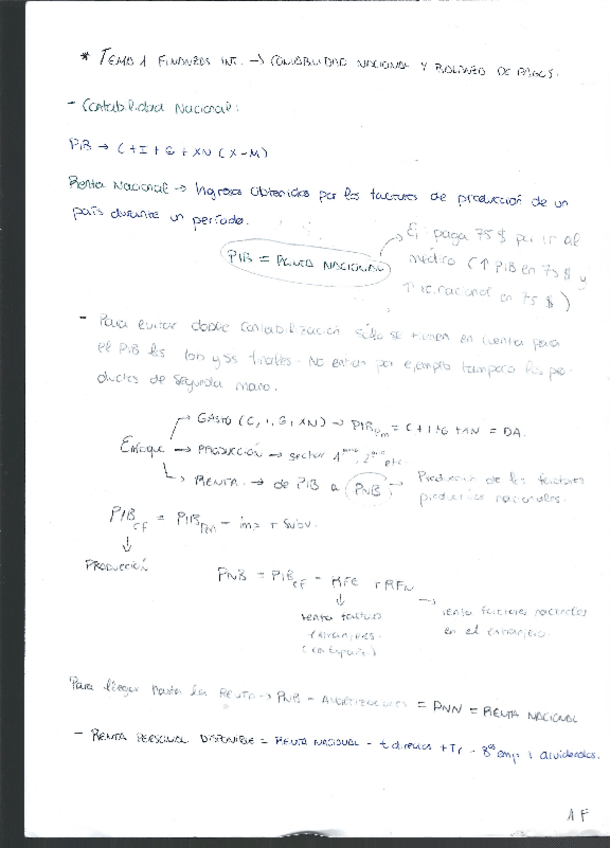 * TEMA 1 FINANZAS INT. → CONTABILIDAD NACIONAL Y BALANZA DE PAGOS.
- Contabilidad Nacional:
PiB → C+I+G+XN (X-M)
Renta Nacional → Ingresos obtenidos por los factores de producción de un
país durante un período.
PIB = RENTA NACIONAL
Ej paga 75 $ por ir al
médico (↑ PIB en 75 $ y
↑ r. nacional en 75 $)
- Para evitar doble contabilización sólo se tienen en cuenta para
el PIB los bb y ss finales. No entran por ejemplo tampoco los pro-
ductos de segunda mano.
Enfoque
→ GASTO (C, I, G, XN) → PIBpm = C+I+G+XN = DA.
→ PRODUCCIÓN → sector 1ario, 2ario etc.
→ RENTA → de PIB a PNB → Producción de los factores
productivos nacionales.
PIBcf = PIBpm - imp + Subv.
↓
PRODUCCIÓN
PNB = PIBcf - RFE + RFN
↓ renta factores
extranjeros.
(en España)
→ renta factores nacionales
en el extranjero.
Para llegar hasta la RENTA → PNB - AMORTIZACIONES = PNN = RENTA NACIONAL
- RENTA PERSONAL DISPONIBLE = RENTA NACIONAL - t directos + Tr - Bºs emp + dividendos.
1 F